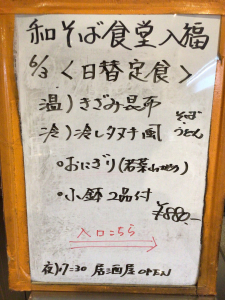 和そば食堂 入福
6/3 <日替定食>
温) きざみ昆布
冷) 冷しタヌキ風
そば
うどん
・おにぎり(若菜
・小鉢2品付
¥880.-
入口こちら
夜)17:30 居酒屋OPEN